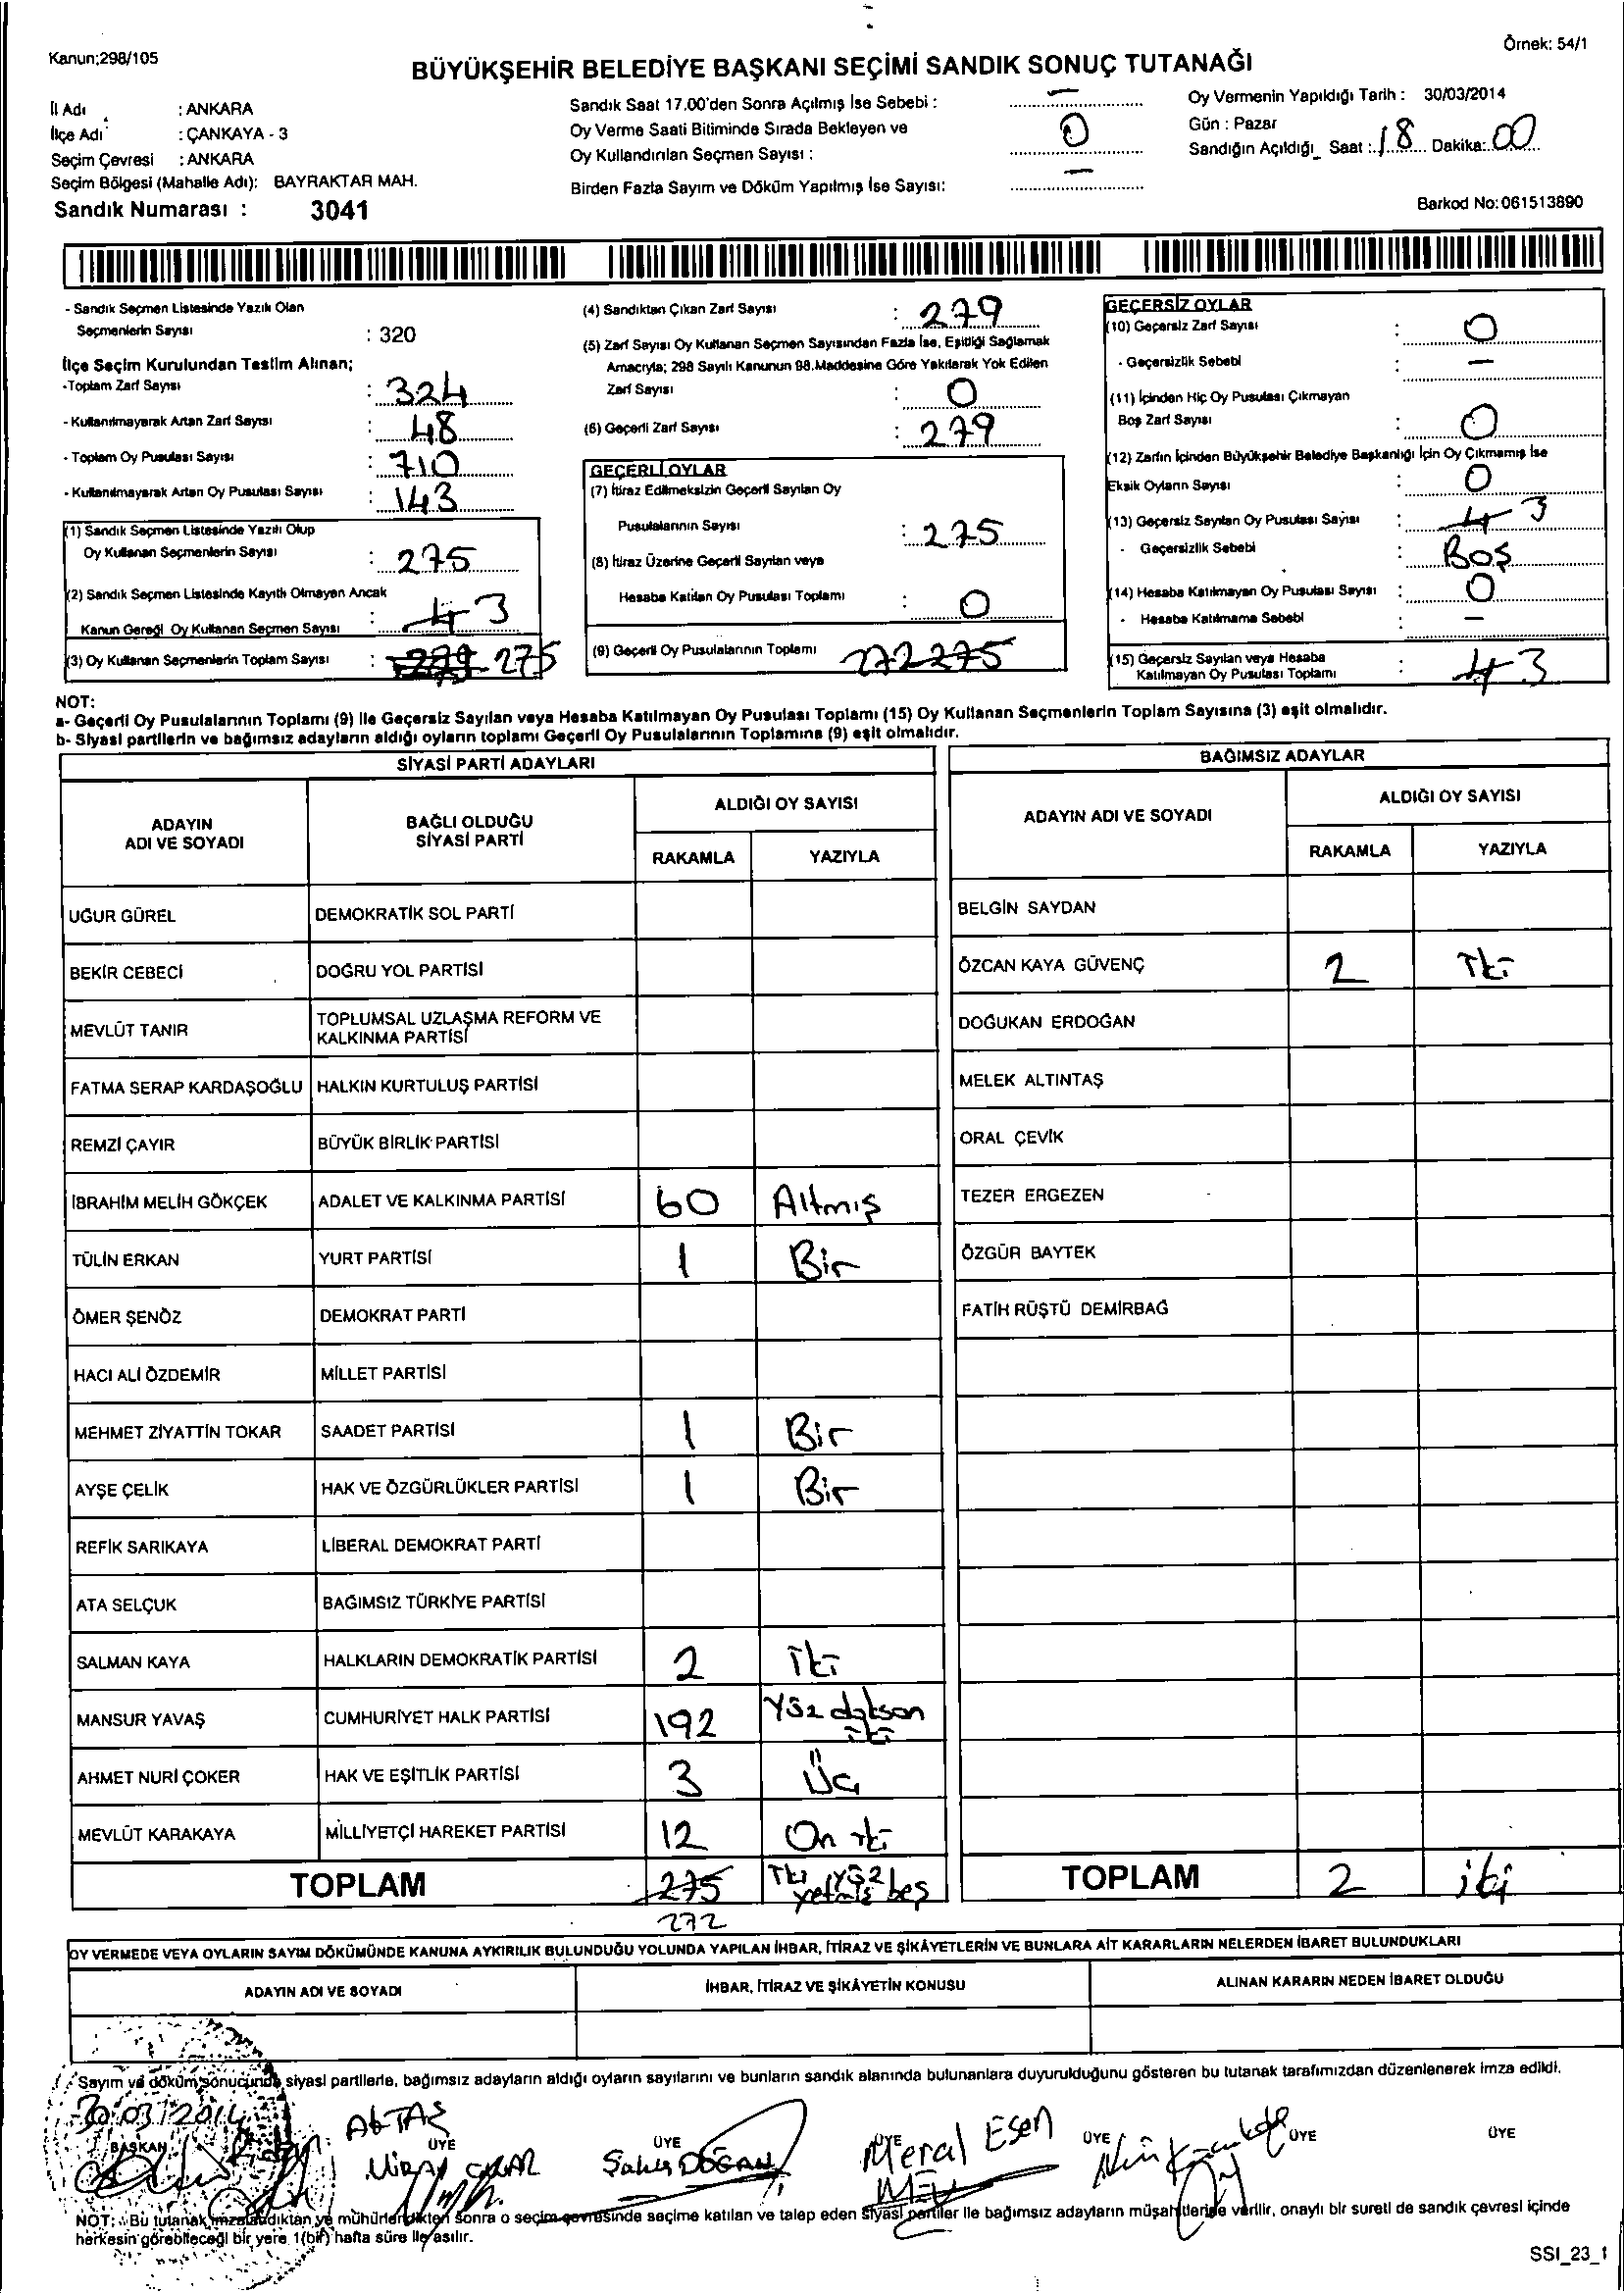 Kanun;298/105
Örnek: 54/1
BÜYÜKŞEHİR BELEDİYE BAŞKANI SEÇİMİ SANDIK SONUÇ TUTANAĞI
İl Adı : ANKARA
İlçe Adı : ÇANKAYA - 3
Seçim Çevresi : ANKARA
Seçim Bölgesi (Mahalle Adı): BAYRAKTAR MAH.
Sandık Numarası : 3041
Sandık Saat 17.00'den Sonra Açılmış İse Sebebi : –
Oy Verme Saati Bitiminde Sırada Bekleyen ve
Oy Kullandırılan Seçmen Sayısı : 0
Birden Fazla Sayım ve Döküm Yapılmış İse Sayısı: –
Oy Vermenin Yapıldığı Tarih : 30/03/2014
Gün : Pazar
Sandığın Açıldığı Saat : 18 Dakika: 00
Barkod No: 061513890
- Sandık Seçmen Listesinde Yazılı Olan
Seçmenlerin Sayısı : 320
İlçe Seçim Kurulundan Teslim Alınan;
-Toplam Zarf Sayısı : 324
- Kullanılmayarak Artan Zarf Sayısı : 48
- Toplam Oy Pusulası Sayısı : 710
- Kullanılmayarak Artan Oy Pusulası Sayısı : 143
(1) Sandık Seçmen Listesinde Yazılı Olup
Oy Kullanan Seçmenlerin Sayısı : 275
(2) Sandık Seçmen Listesinde Kayıtlı Olmayan Ancak
Kanun Gereği Oy Kullanan Seçmen Sayısı : 4 3
(3) Oy Kullanan Seçmenlerin Toplam Sayısı : 279 275
(4) Sandıktan Çıkan Zarf Sayısı : 279
(5) Zarf Sayısı Oy Kullanan Seçmen Sayısından Fazla İse, Eşitliği Sağlamak
Amacıyla; 298 Sayılı Kanunun 98.Maddesine Göre Yakılarak Yok Edilen
Zarf Sayısı : 0
(6) Geçerli Zarf Sayısı : 279
GEÇERLİ OYLAR
(7) İtiraz Edilmeksizin Geçerli Sayılan Oy
Pusulalarının Sayısı : 275
(8) İtiraz Üzerine Geçerli Sayılan veya
Hesaba Katılan Oy Pusulası Toplamı : 0
(9) Geçerli Oy Pusulalarının Toplamı : 272 275
GEÇERSİZ OYLAR
(10) Geçersiz Zarf Sayısı : 0
- Geçersizlik Sebebi : –
(11) İçinden Hiç Oy Pusulası Çıkmayan
Boş Zarf Sayısı : 0
(12) Zarfın İçinden Büyükşehir Belediye Başkanlığı İçin Oy Çıkmamış İse
Eksik Oyların Sayısı : 0
(13) Geçersiz Sayılan Oy Pusulası Sayısı : 4 3
- Geçersizlik Sebebi : Boş
(14) Hesaba Katılmayan Oy Pusulası Sayısı : 0
- Hesaba Katılmama Sebebi : –
(15) Geçersiz Sayılan veya Hesaba
Katılmayan Oy Pusulası Toplamı : 4 3
NOT:
a- Geçerli Oy Pusulalarının Toplamı (9) ile Geçersiz Sayılan veya Hesaba Katılmayan Oy Pusulası Toplamı (15) Oy Kullanan Seçmenlerin Toplam Sayısına (3) eşit olmalıdır.
b- Siyasi partilerin ve bağımsız adayların aldığı oyların toplamı Geçerli Oy Pusulalarının Toplamına (9) eşit olmalıdır.
SİYASİ PARTİ ADAYLARI
ADAYIN ADI VE SOYADI BAĞLI OLDUĞU SİYASİ PARTİ ALDIĞI OY SAYISI
RAKAMLA YAZIYLA
UĞUR GÜREL DEMOKRATİK SOL PARTİ
BEKİR CEBECİ DOĞRU YOL PARTİSİ
MEVLÜT TANIR TOPLUMSAL UZLAŞMA REFORM VE
KALKINMA PARTİSİ
FATMA SERAP KARDAŞOĞLU HALKIN KURTULUŞ PARTİSİ
REMZİ ÇAYIR BÜYÜK BİRLİK PARTİSİ
İBRAHİM MELİH GÖKÇEK ADALET VE KALKINMA PARTİSİ 60 Altmış
TÜLİN ERKAN YURT PARTİSİ 1 Bir
ÖMER ŞENÖZ DEMOKRAT PARTİ
HACI ALİ ÖZDEMİR MİLLET PARTİSİ
MEHMET ZİYATTİN TOKAR SAADET PARTİSİ 1 Bir
AYŞE ÇELİK HAK VE ÖZGÜRLÜKLER PARTİSİ 1 Bir
REFİK SARIKAYA LİBERAL DEMOKRAT PARTİ
ATA SELÇUK BAĞIMSIZ TÜRKİYE PARTİSİ
SALMAN KAYA HALKLARIN DEMOKRATİK PARTİSİ 2 İki
MANSUR YAVAŞ CUMHURİYET HALK PARTİSİ 192 Yüz doksan
iki
AHMET NURİ ÇOKER HAK VE EŞİTLİK PARTİSİ 3 Üç
MEVLÜT KARAKAYA MİLLİYETÇİ HAREKET PARTİSİ 12 On iki
TOPLAM 275 İki yüz
yetmiş beş
272
BAĞIMSIZ ADAYLAR
ADAYIN ADI VE SOYADI ALDIĞI OY SAYISI
RAKAMLA YAZIYLA
BELGİN SAYDAN
ÖZCAN KAYA GÜVENÇ 2 İki
DOĞUKAN ERDOĞAN
MELEK ALTINTAŞ
ORAL ÇEVİK
TEZER ERGEZEN
ÖZGÜR BAYTEK
FATİH RÜŞTÜ DEMİRBAĞ
TOPLAM 2 iki
OY VERMEDE VEYA OYLARIN SAYIM DÖKÜMÜNDE KANUNA AYKIRILIK BULUNDUĞU YOLUNDA YAPILAN İHBAR, İTİRAZ VE ŞİKÂYETLERİN VE BUNLARA AİT KARARLARIN NELERDEN İBARET BULUNDUKLARI
ADAYIN ADI VE SOYADI İHBAR, İTİRAZ VE ŞİKÂYETİN KONUSU ALINAN KARARIN NEDEN İBARET OLDUĞU
Sayım ve döküm sonucunda siyasi partilerle, bağımsız adayların aldığı oyların sayılarını ve bunların sandık alanında bulunanlara duyurulduğunu gösteren bu tutanak tarafımızdan düzenlenerek imza edildi.
30/03/2014
BAŞKAN ÜYE ÜYE ÜYE ÜYE ÜYE ÜYE
AKTAŞ
DOĞAN
Meral Esen
NOT: Bu tutanak imzalandıktan ve mühürlendikten sonra o seçim çevresinde seçime katılan ve talep eden siyasi partiler ile bağımsız adayların müşahitlerine verilir, onaylı bir sureti de sandık çevresi içinde
herkesin görebileceği bir yere 1(bir) hafta süre ile asılır.
SSI_23_1